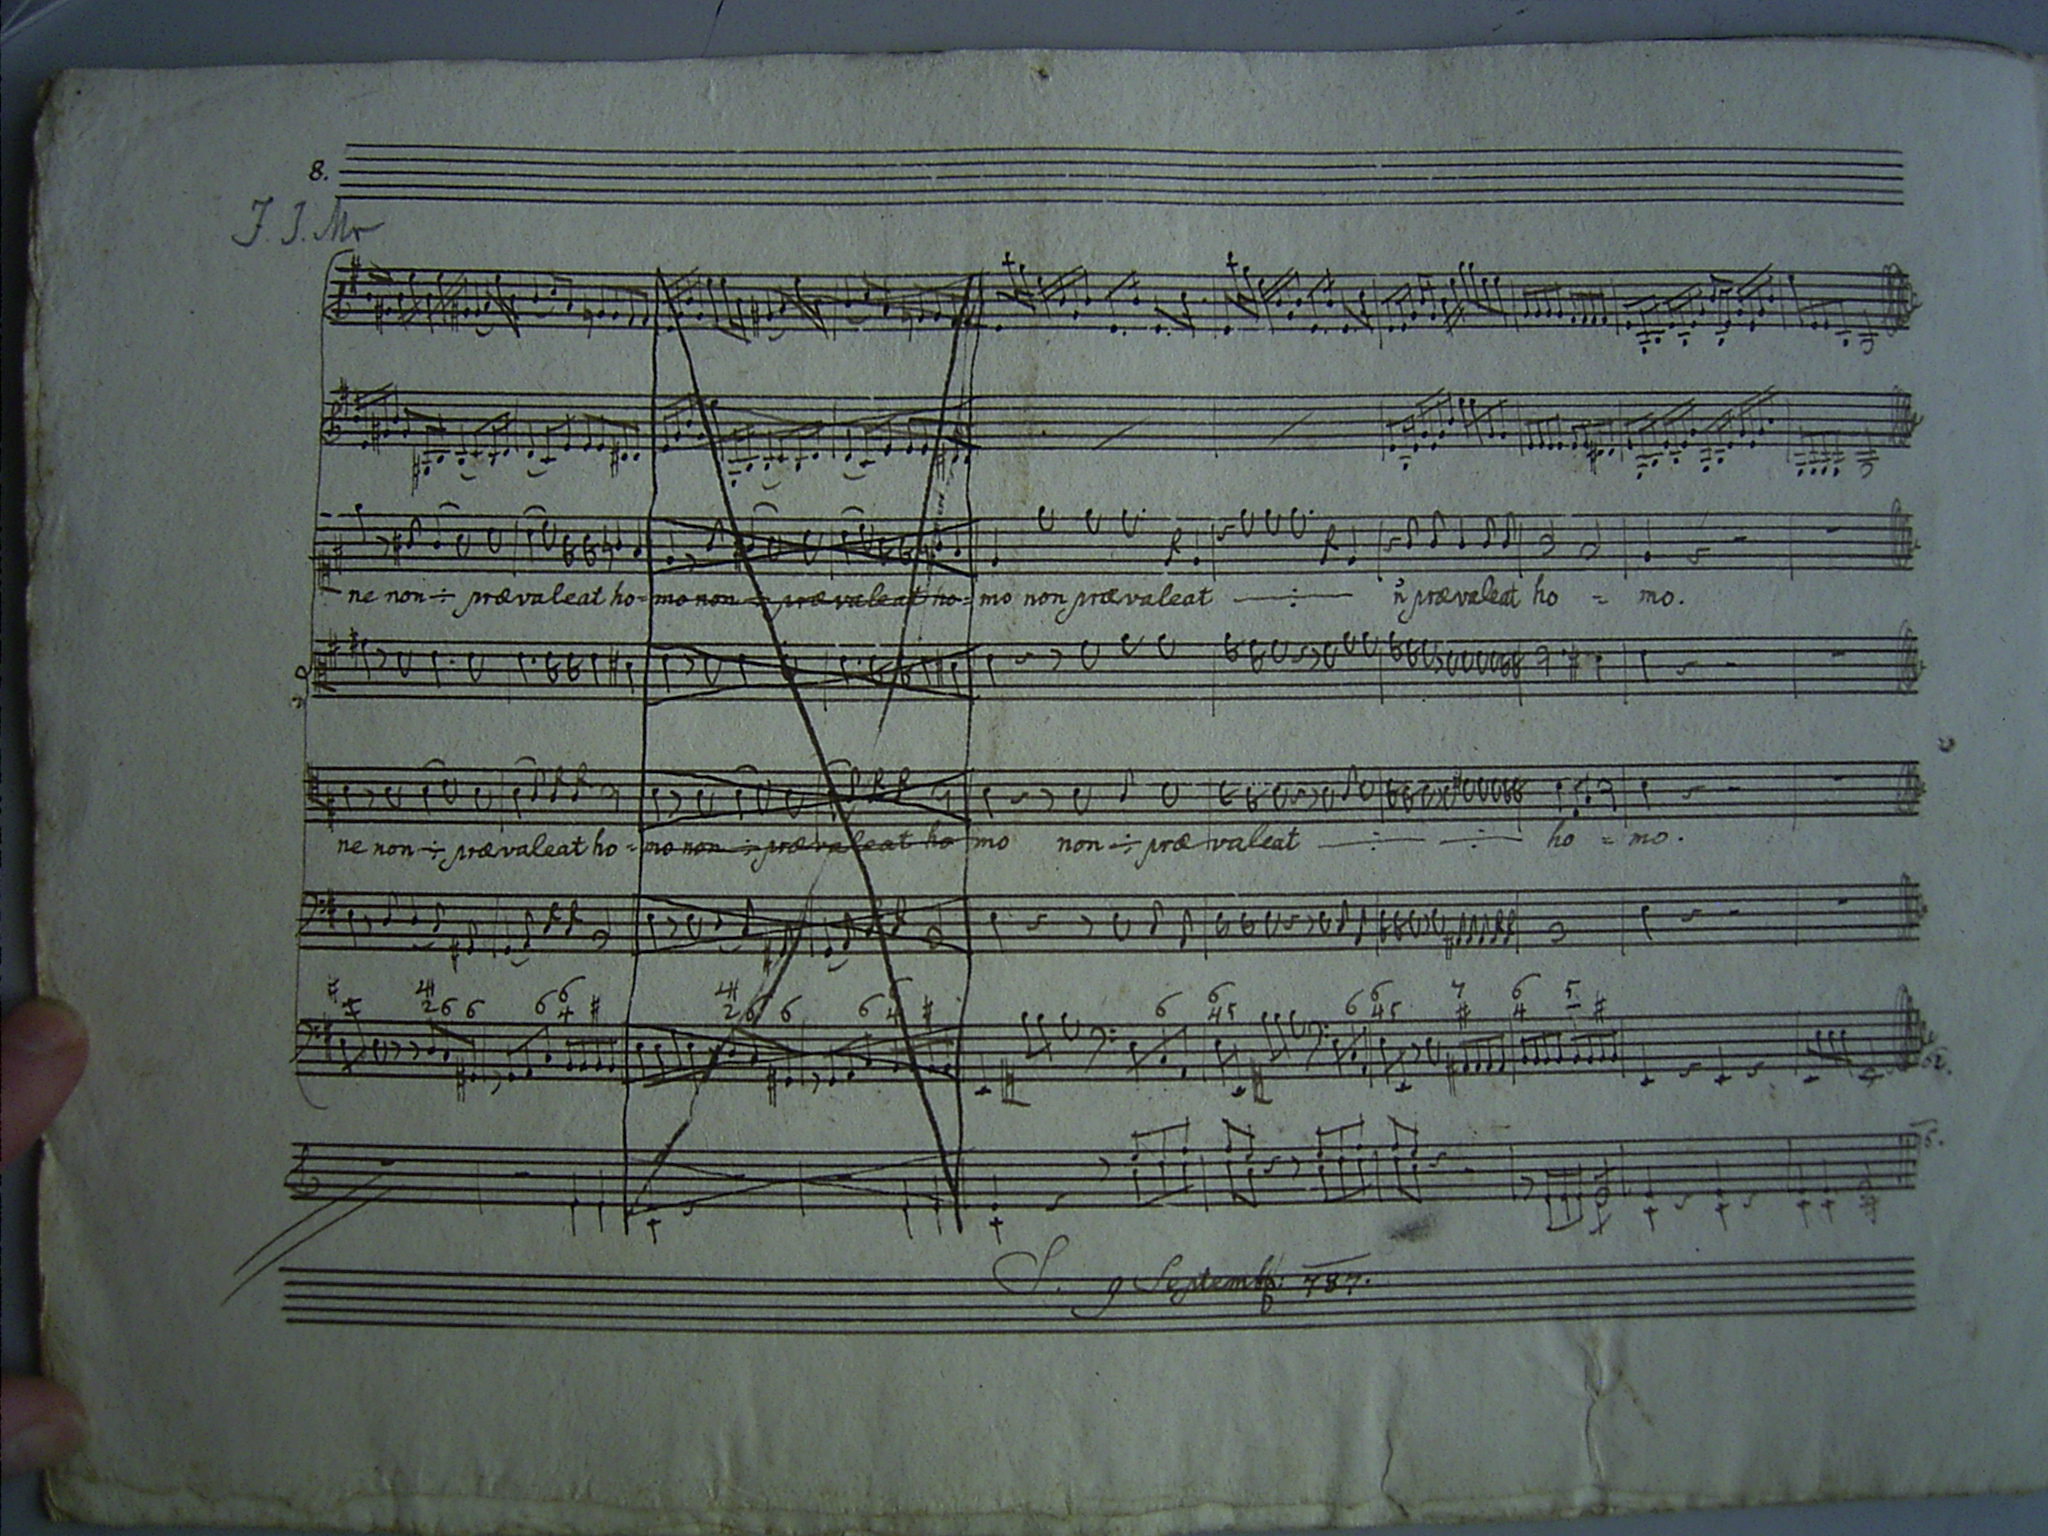 8.
ne non ÷ prævaleat ho= mo non ÷ prævaleat ho= mo non prævaleat —÷— n̄ prævaleat ho = mo.
ne non ÷ prævaleat ho = mo non ÷ prævaleat ho mo non ÷ prævaleat —÷— —÷— ho = mo.
4 6 6 6 6 4 6 6 6 6 6 6 4 5 6 6 4 5 7 6 5
2 4 2 4 4
S. 9 Septemb: 787.